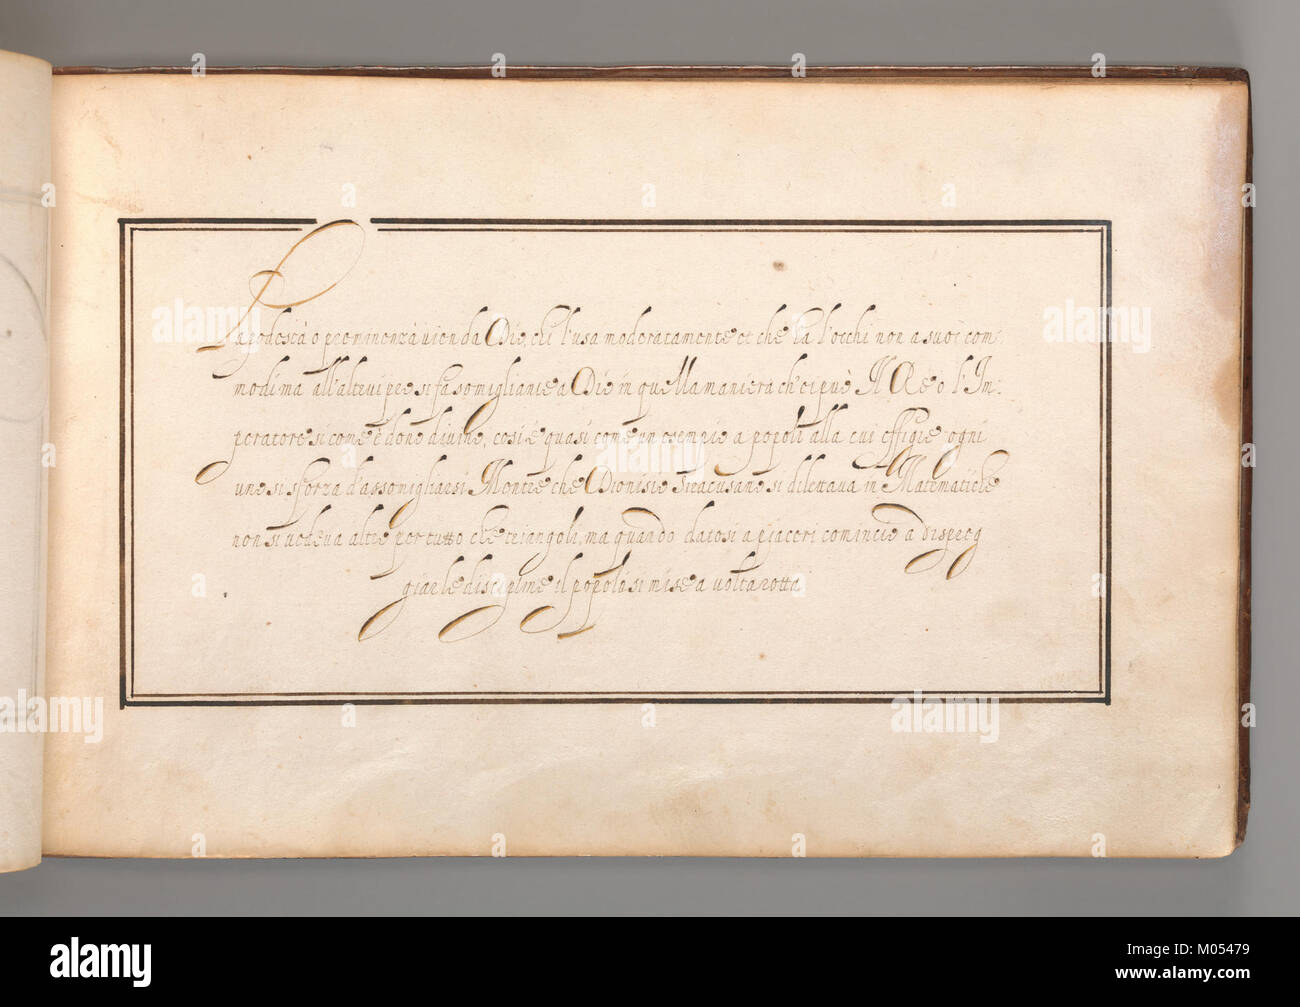 La podestà o preminenza vien da Dio, chi l'usa moderatamente et che ha l'occhi non a suoi com:
modi ma all'altrui pro si fa somigliante a Dio in quella maniera ch'ei può Il Re o l'Im:
peratore si come è dono divino, così è quasi come un esempio a popoli alla cui effigie ogni
uno si sforza d'assomigliarsi Mentre che Dionisio Siracusano si dilettava in Matematiche
non si vedeva altro per tutto che triangoli, ma quando datosi a piaceri comincio a dispreg
giar le discipline il popolo si mise a volta rotta
alamy
Image ID: M05479
www.alamy.com